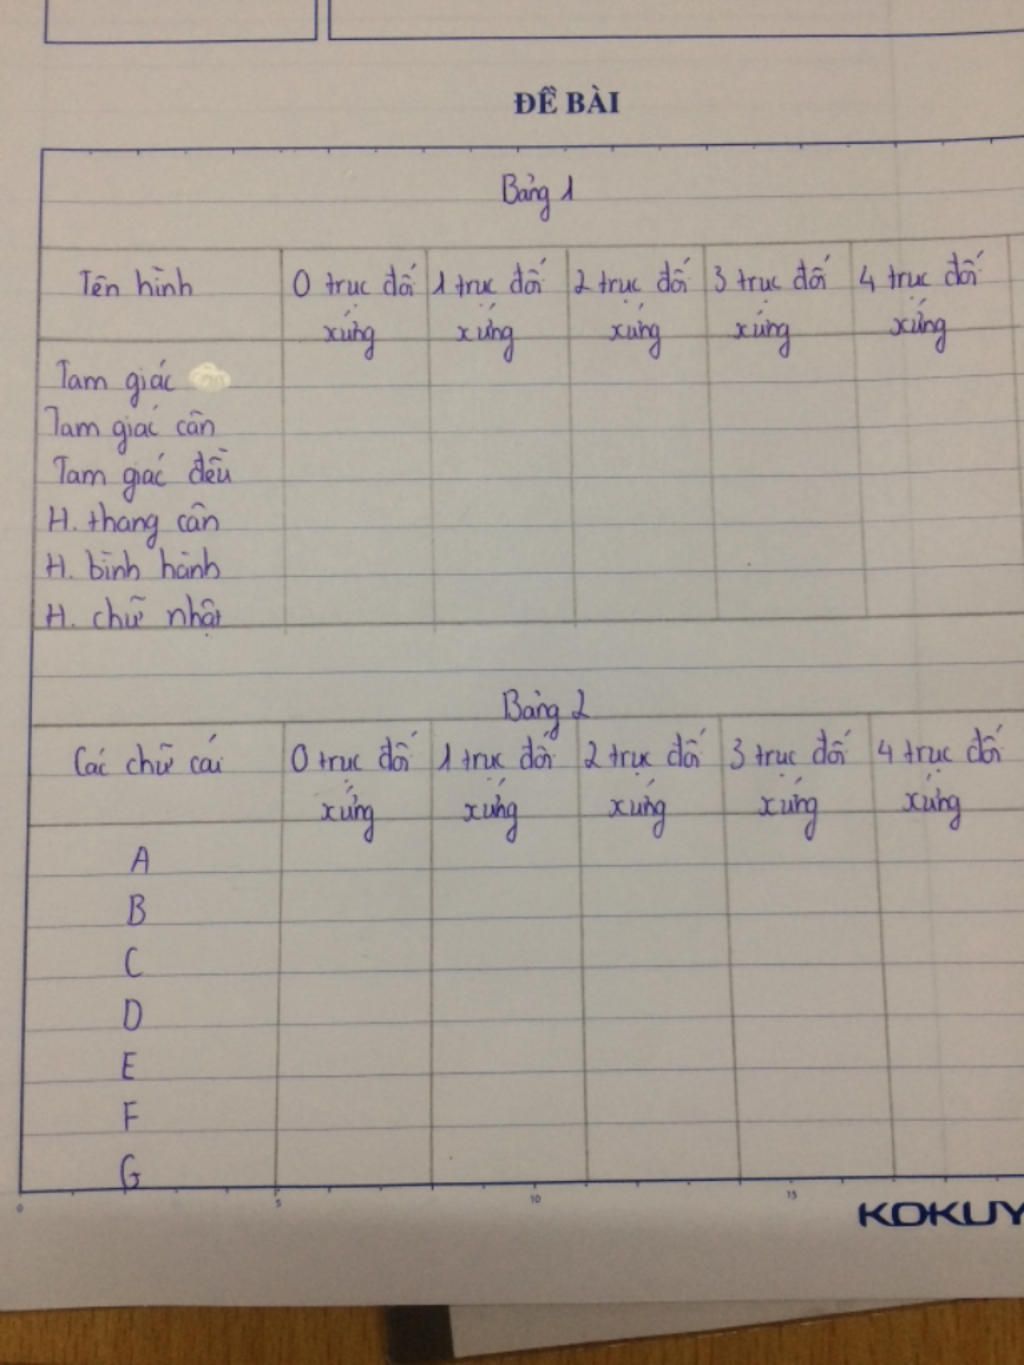 ĐỀ BÀI
Bảng 1
Tên hình 0 trục đối xứng 1 trục đối xứng 2 trục đối xứng 3 trục đối xứng 4 trục đối xứng
Tam giác
Tam giác cân
Tam giác đều
H. thang cân
H. bình hành
H. chữ nhật
Bảng 2
Các chữ cái 0 trục đối xứng 1 trục đối xứng 2 trục đối xứng 3 trục đối xứng 4 trục đối xứng
A
B
C
D
E
F
G
0 5 10 15
KOKUY